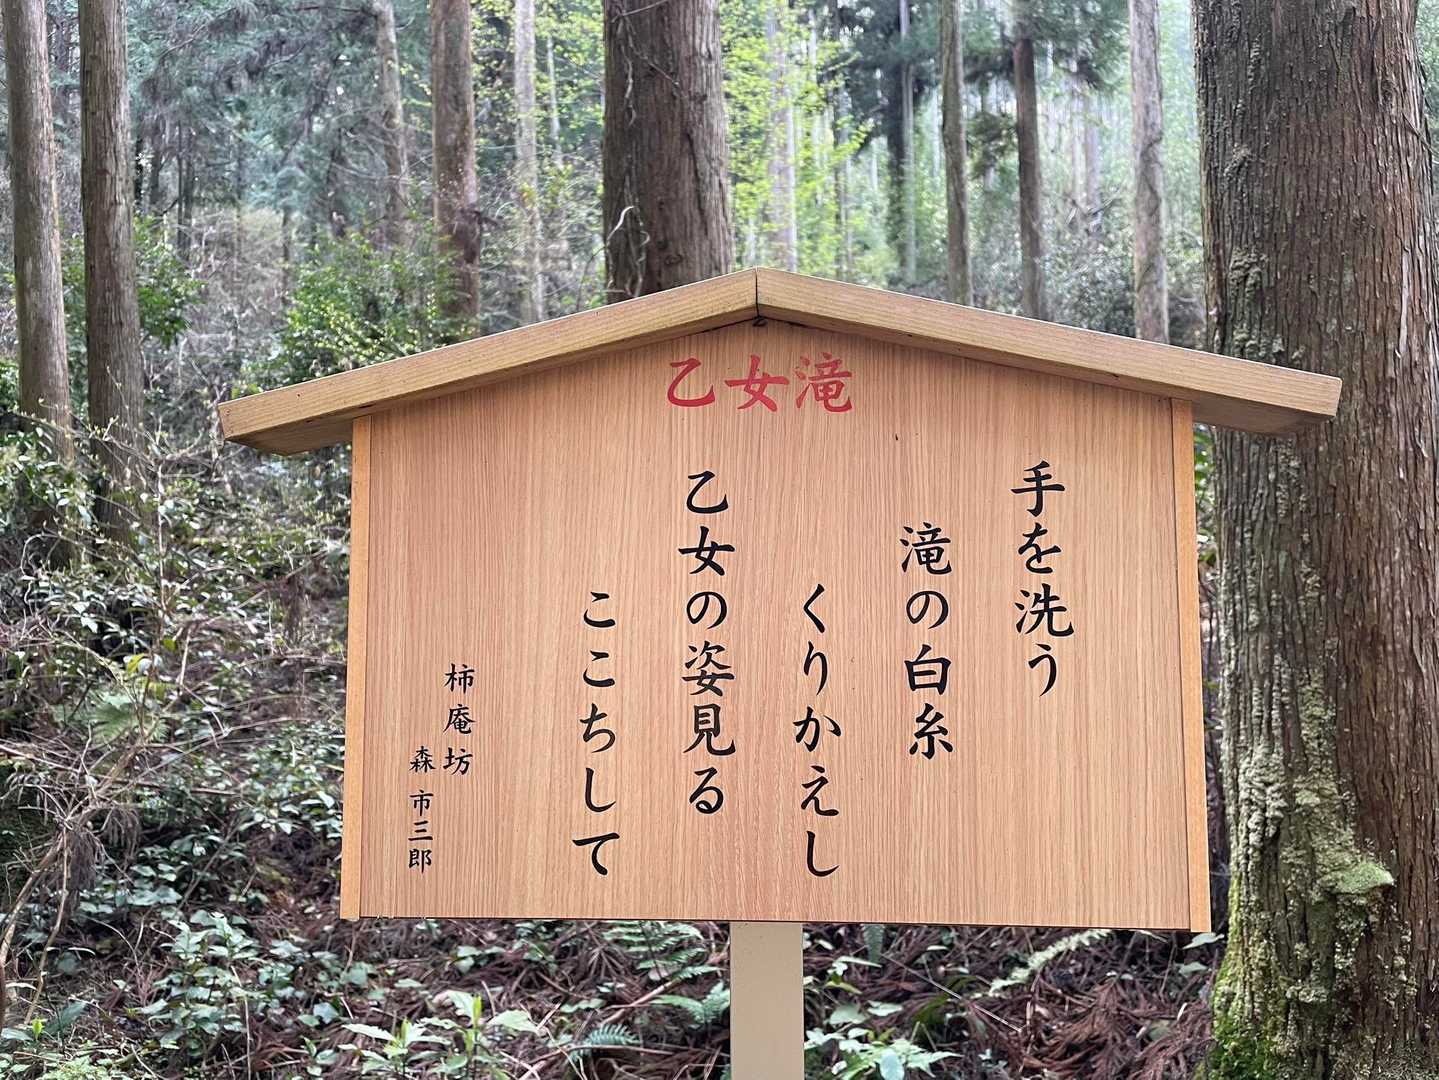 乙女滝
手を洗う
滝の白糸
くりかえし
乙女の姿見る
ここちして
柿庵坊
森 市三郎